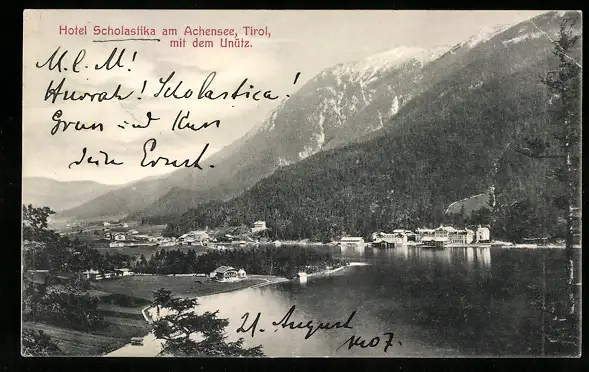 Hotel Scholastika am Achensee, Tirol,
mit dem Unütz.
M. l. M!
Hurrah! Scholastica!
Gruss und Kuss
dein Ernst.
21. August
1907.